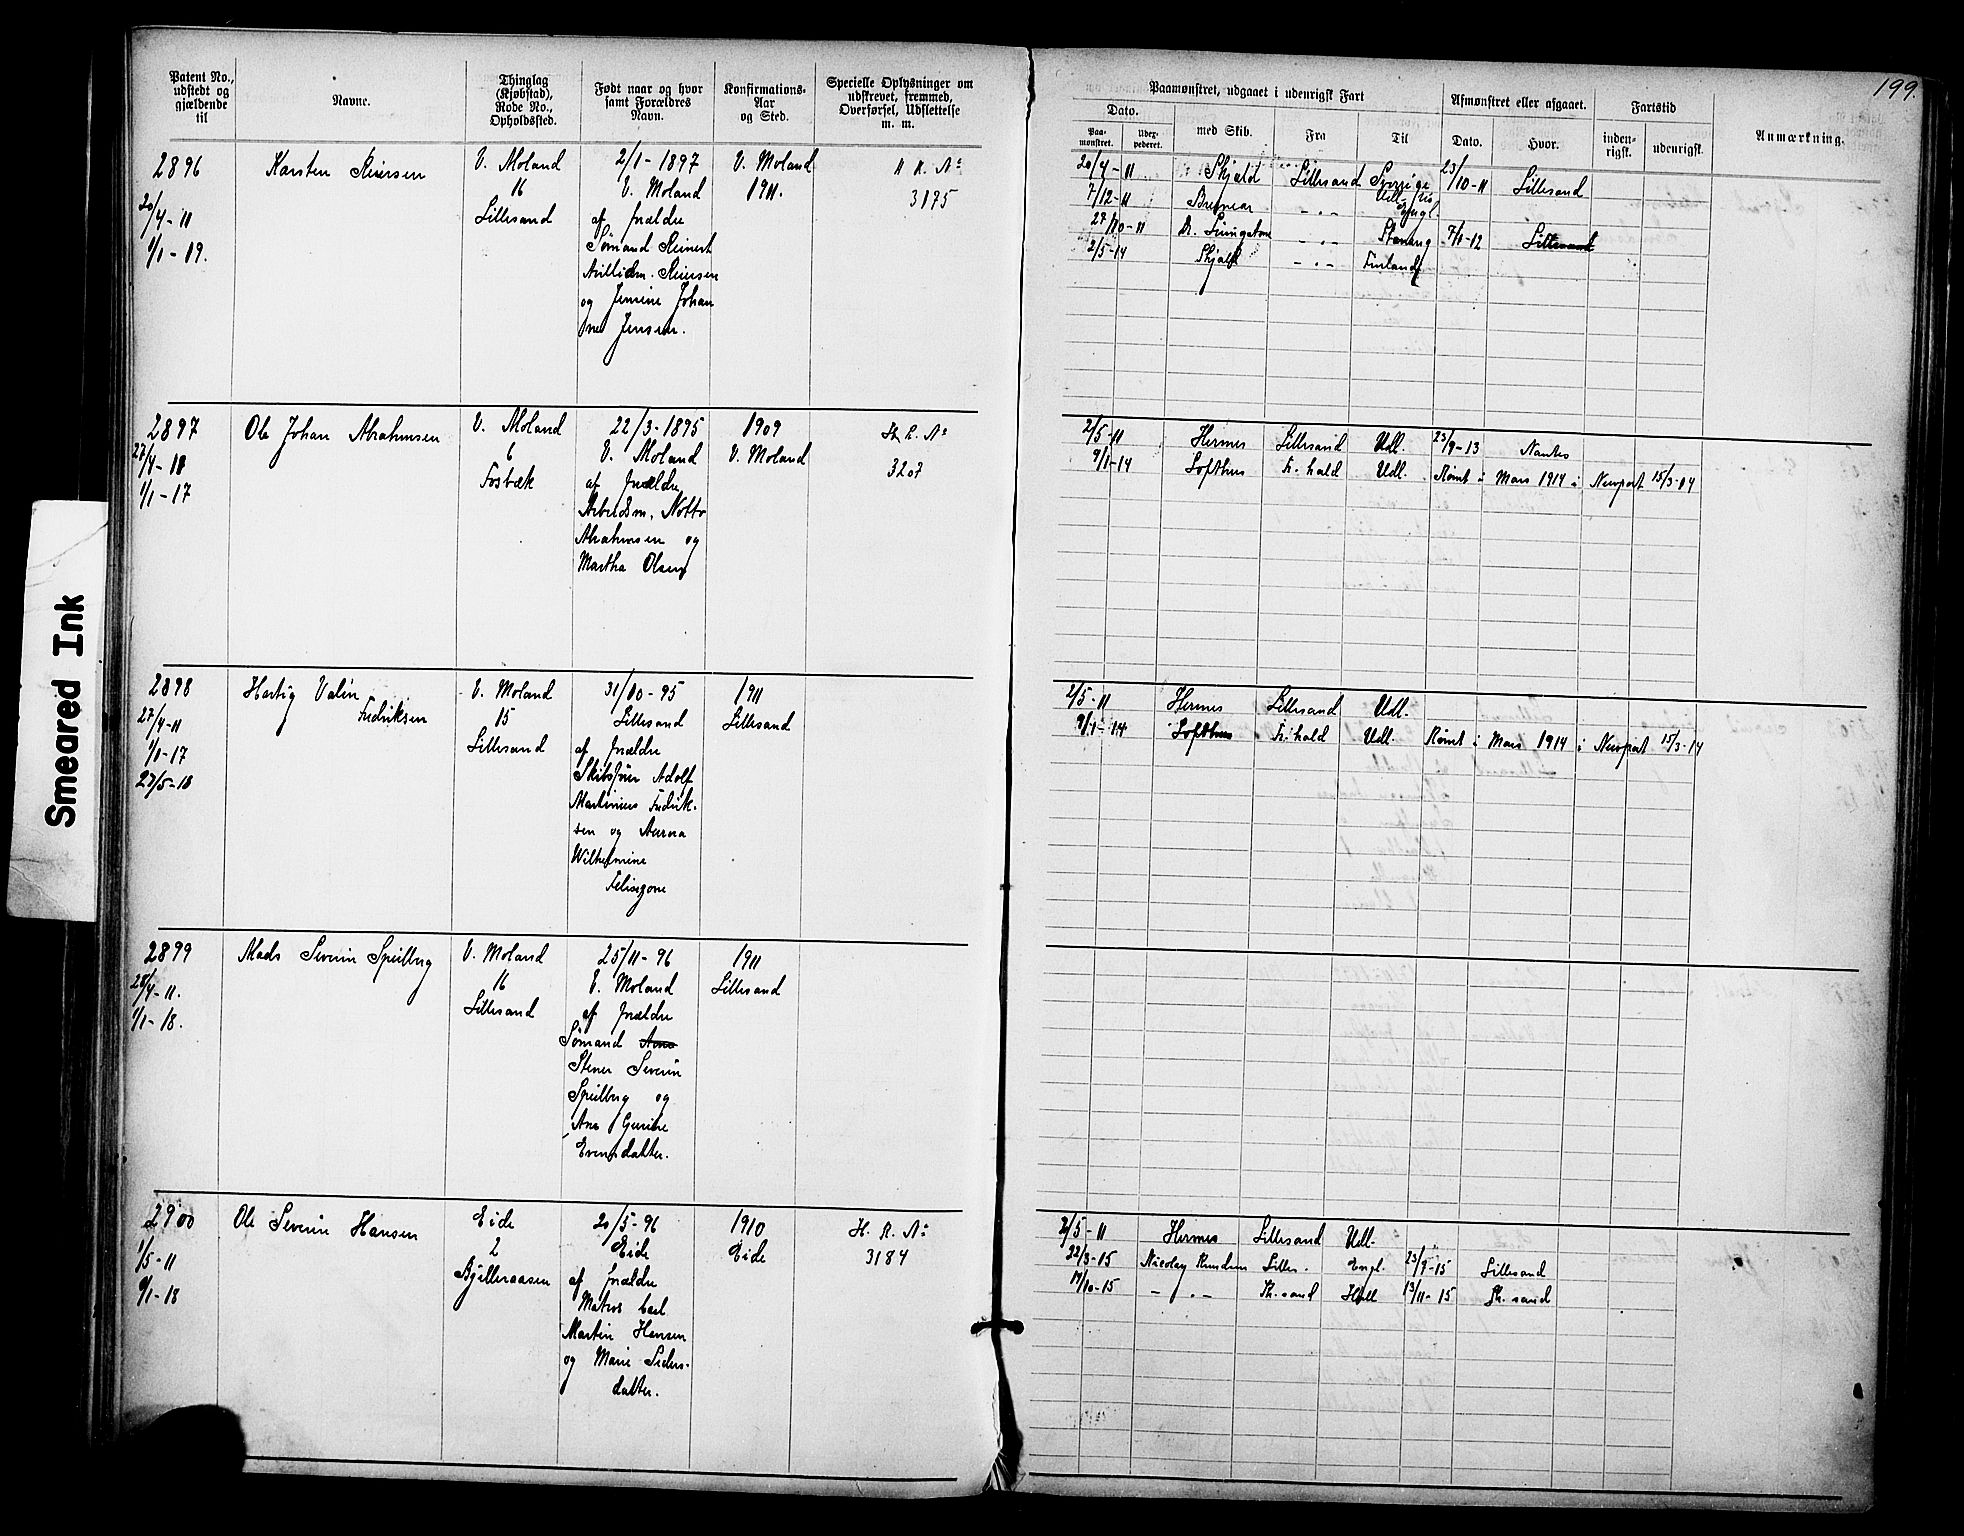 199.
Patent No., udstedt og gjældende til
Navne.
Thinglag (Kjøbstad), Rode No., Opholdssted.
Født naar og hvor samt Forældres Navn.
Konfirmations- Aar og Sted.
Specielle Oplysninger om udskrevet, fremmed, Overførsel, Udslettelse m. m.
Paamønstret, udgaaet i udenrigsk Fart
Dato.
Paa- mønstret.
med Skib.
Fra
Til
Afmønstret eller afgaaet.
Dato.
Hvor.
Fartstid
inden- rigsk.
udenrigsk.
Anmærkning.
2896
20/4-11
1/1-19.
Karsten Reiersen
V. Moland
16
Lillesand
2/1-1897
V. Moland
af forældre
Sømand Reinert
Reiersen
og Jensine Johan
ne Jensen.
V. Moland
1911.
3175
20/4-11 Skjold Lillesand Sverige 23/10-11 Lillesand
7/12-11 -.- Engl.
27/10-11 -.- 7/1-12 Lillesand
2/5-14 Skjold -.- Finland
2897
27/4-11
1/1-17
Ole Johan Abrahamsen
V. Moland
6
Fosbæk
22/3-1895
V. Moland
af forældre
Arbeidsm. Notto
Abrahamsen og
Martha Olsen
1909
V. Moland
H. R. No
3207
2/5-11 Hermes Lillesand Udl. 23/9-13 Nantes
9/1-14 Lofthus Fr. hald Udl. Rømt i Mars 1914 i Newport 15/3-14
2898
27/4-11
1/1-17
27/5-18
Hartvig Valin
Fredriksen
V. Moland
15
Lillesand
31/10-95
Lillesand
af forældre
Skibsfører Adolf
Martinius Fredrik-
sen og Aurora
Wilhelmine
1911
Lillesand
2/5-11 Hermes Lillesand Udl.
9/1-14 Lofthus Fr. hald Udl. Rømt i Mars 1914 i Newport 15/3-14
2899
28/4-11.
1/1-18.
Mads Severin Speilberg
V. Moland
16
Lillesand
25/11-96
V. Moland
af forældre
Sømand
Stener Severin
Speilberg og
Ane
Evensdatter.
1911
Lillesand
2900
1/5-11
1/1-18
Ole Severin Hansen
Eide
2
20/5-96
Eide
af forældre
Matros Carl
Martin Hansen
og Marie Peders-
datter.
1910
Eide
H. R. No
3184
2/5-11 Hermes Lillesand Udl.
22/3-15 Nicolay Knudsen Lilles. Engl. 23/9-15 Lillesand
17/10-15 -.- Kr. sand Hull 13/11-15 Kr. sand
Smeared Ink